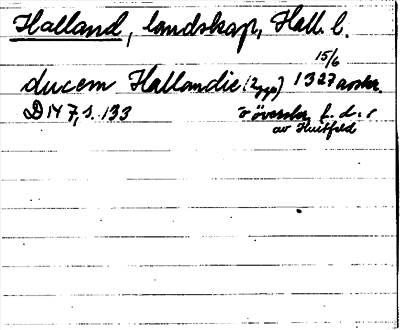 Halland, landskap, Hall. l.
15/6
ducem Hallandie (2 ggr) 1327 avskr.
DN 7, s. 133
o översatt f. d.
av Huitfeld